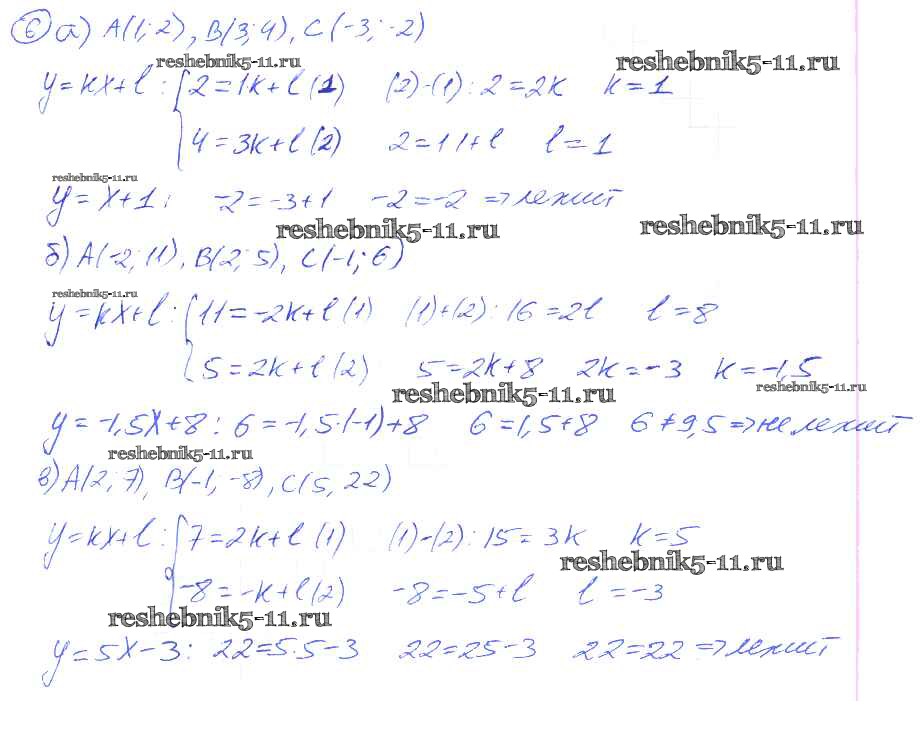 6 а) A(1; 2), B(3; 4), C(-3; -2)
reshebnik5-11.ru reshebnik5-11.ru
y = kx + l : { 2 = 1k + l (1) (2)-(1) : 2 = 2k k = 1
4 = 3k + l (2) 2 = 1 + l l = 1
reshebnik5-11.ru
y = x + 1 : -2 = -3 + 1 -2 = -2 => лежит
reshebnik5-11.ru reshebnik5-11.ru
б) A(-2; 11), B(2; 5), C(-1; 6)
reshebnik5-11.ru
y = kx + l : { 11 = -2k + l (1) (1)+(2) : 16 = 2l l = 8
5 = 2k + l (2) 5 = 2k + 8 2k = -3 k = -1,5
reshebnik5-11.ru reshebnik5-11.ru
y = -1,5x + 8 : 6 = -1,5·(-1) + 8 6 = 1,5 + 8 6 ≠ 9,5 => не лежит
reshebnik5-11.ru
в) A(2; 7), B(-1; -8), C(5, 22)
y = kx + l : { 7 = 2k + l (1) (1)-(2) : 15 = 3k k = 5
reshebnik5-11.ru
-8 = -k + l (2) -8 = -5 + l l = -3
reshebnik5-11.ru
y = 5x - 3 : 22 = 5·5 - 3 22 = 25 - 3 22 = 22 => лежит